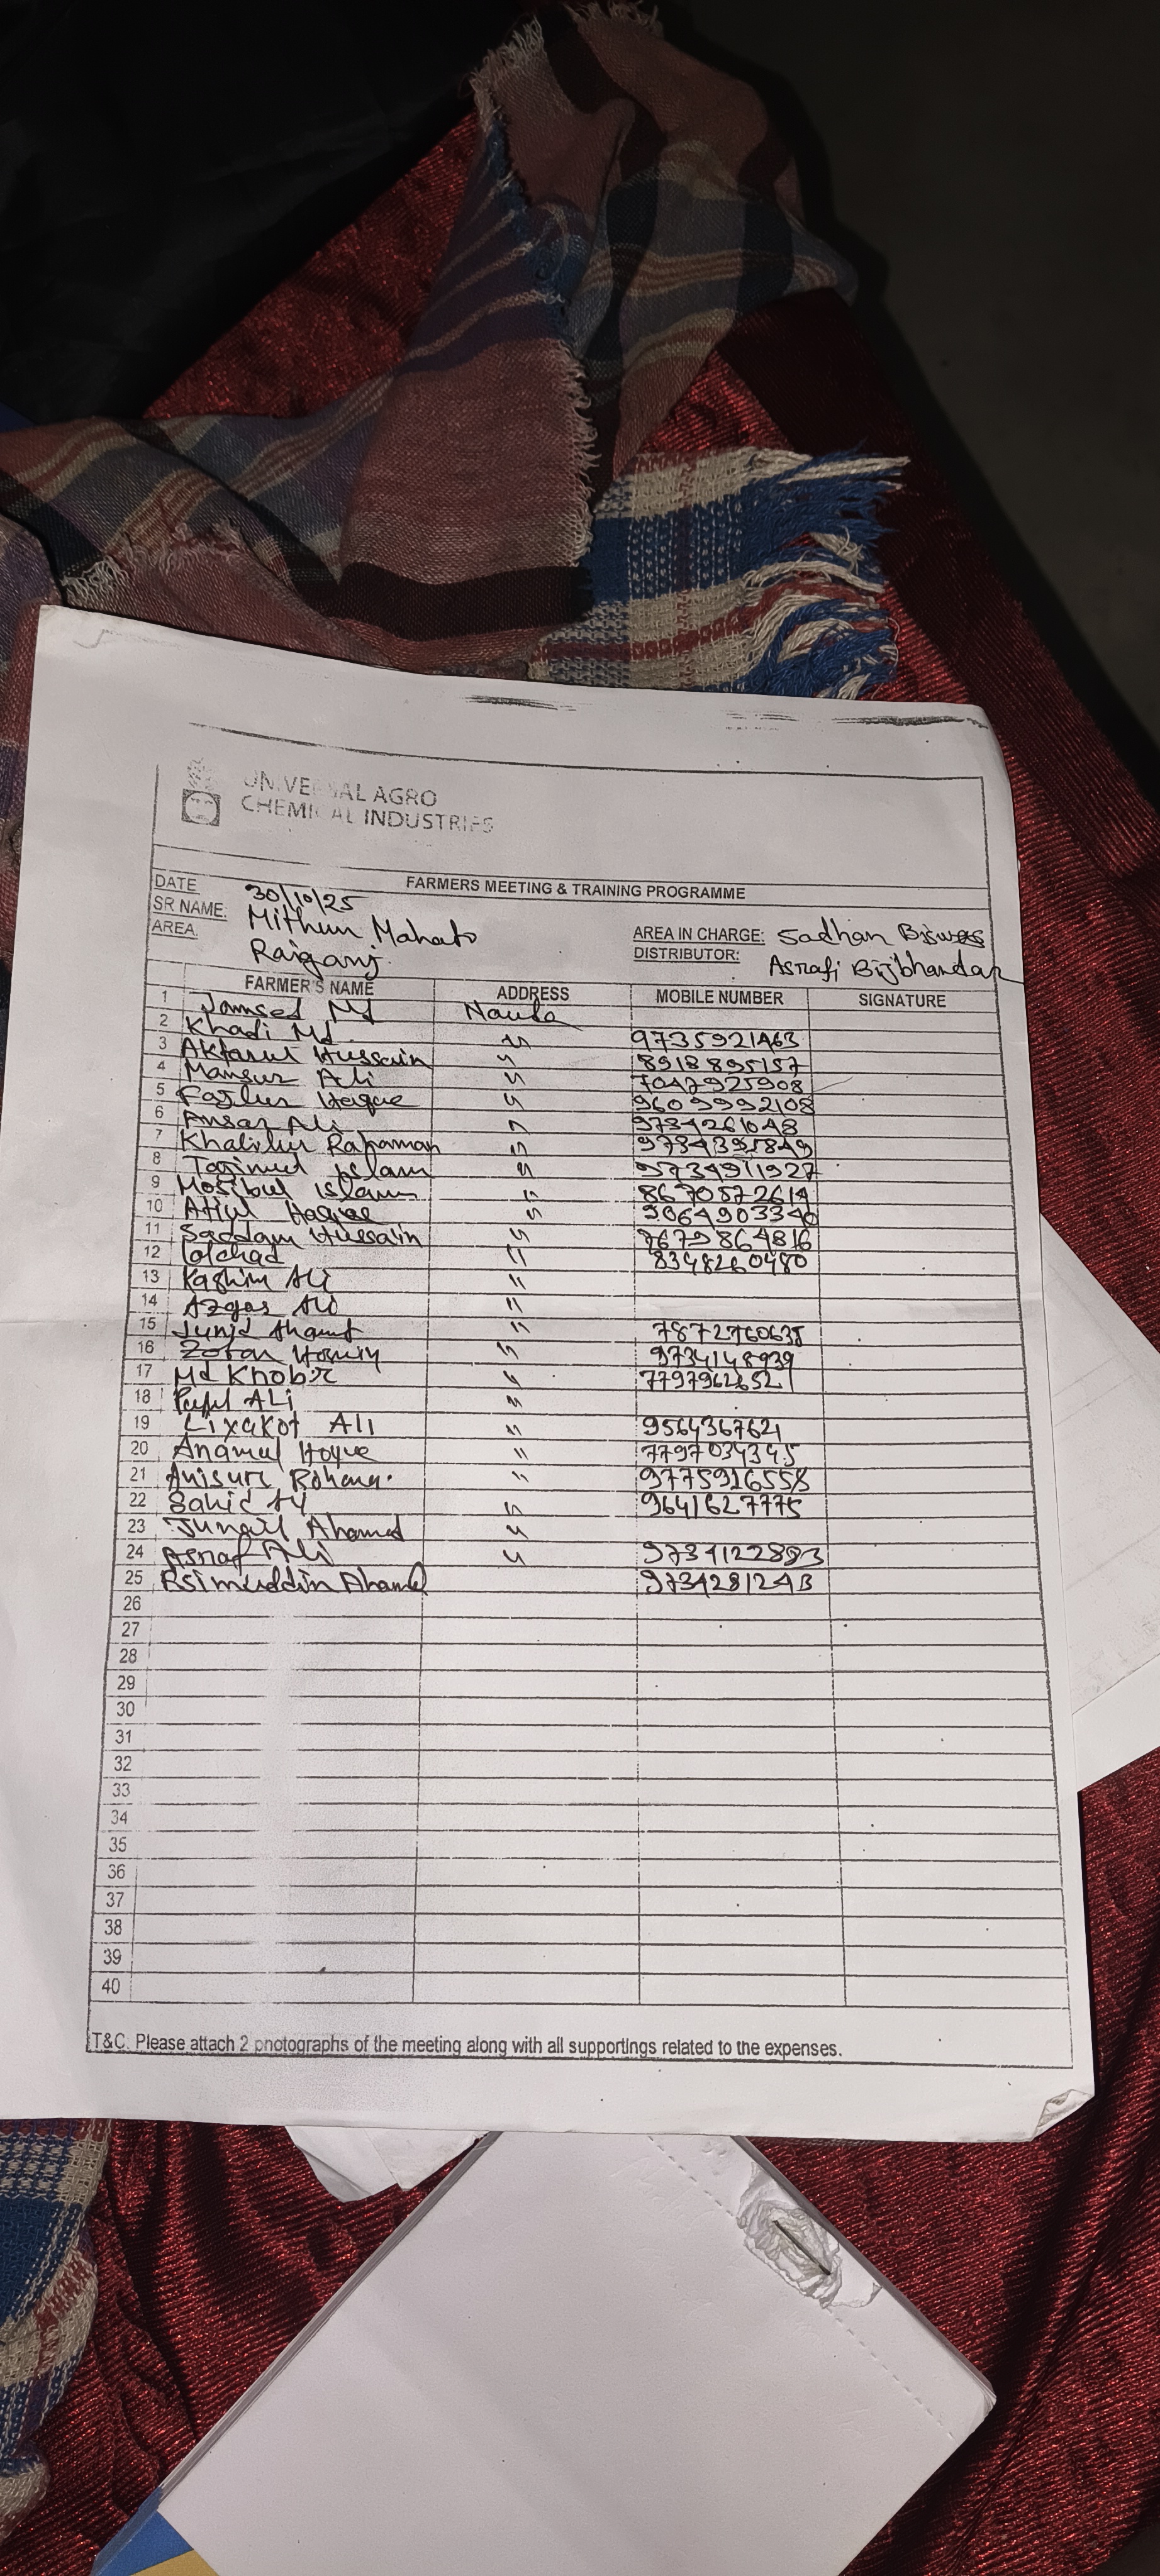 UNIVERSAL AGRO
CHEMICAL INDUSTRIES
FARMERS MEETING & TRAINING PROGRAMME
DATE 30/10/25
SR NAME: Mithun Mahato AREA IN CHARGE: Sadhan Biswas
AREA. Raiganj DISTRIBUTOR: Asrafi Bijbhandar
FARMER'S NAME ADDRESS MOBILE NUMBER SIGNATURE
1 Jamsed Md
2 Khadi Md. " 9735921463
3 Aktarul Hussain " 8918895157
4 Mansur Ali " 7047925908
5 Fazlur Haque " 9609992108
6 Ansar Ali " 9734261048
7 Khalilur Rahaman " 9734395849
8 Tazimul Islam " 9734911927
9 Mosibul Islam " 8670872614
10 Atiul Haque " 9064903340
11 Saddam Hussain " 7679864816
12 Lalchad " 8348260480
13 Kashim Ali "
14 Azgar Ali "
15 Junid Ahamed " 7872760638
16 " 9734148939
17 Md Khobir " 7797962652
18 ALi "
19 Liyakot Ali " 9564367621
20 Anamul Hoque " 7797034345
21 Anisur Rohaman " 9775916558
22 Sahid Ali " 9641627775
23 Junail Ahamed "
24 Asraf Ali " 9734122893
25 Rsimuddin Ahamed 973428124B
26
27
28
29
30
31
32
33
34
35
36
37
38
39
40
T&C. Please attach 2 photographs of the meeting along with all supportings related to the expenses.